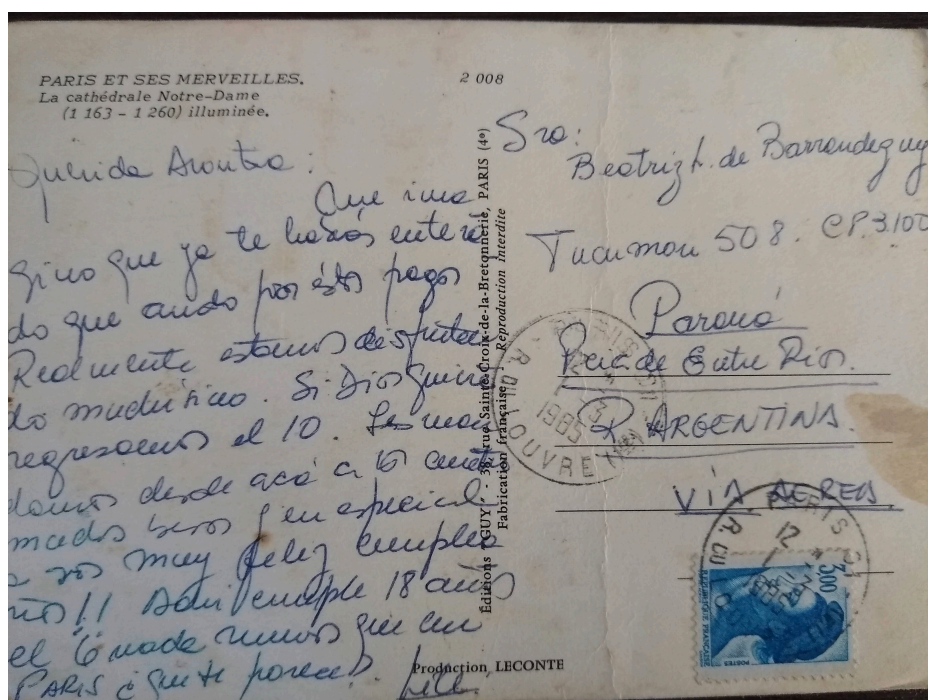 PARIS ET SES MERVEILLES.
La cathédrale Notre-Dame
(1 163 - 1 260) illuminée.
2 008
Querida
Que ima
gino que ya te habrás entera
do que ando por éstos pagos
Realmente estamos disfrutan
do muchísimo. Si Dios quiere
regresamos el 10. Les man
damos desde acá a
muchos besos y en especial
a vos muy feliz cumplea
ños!! cumple 18 años
el 6 nada menos que en
PARIS ¿que te parece?
Editions "GUY" - 38, rue Sainte-Croix-de-la-Bretonnerie, PARIS (4e)
Fabrication française - Reproduction Interdite
Production LECONTE
Sra:
Beatriz L. de Barrandeguy
Tucuman 508. CP.3.100
Paraná
Pcia. de Entre Rios.
R. ARGENTINA.
VÍA AEREA
PARIS
R. DU LOUVRE
12
1985
PARIS
12
R. DU
3,00
REPUBLIQUE FRANÇAISE
POSTES